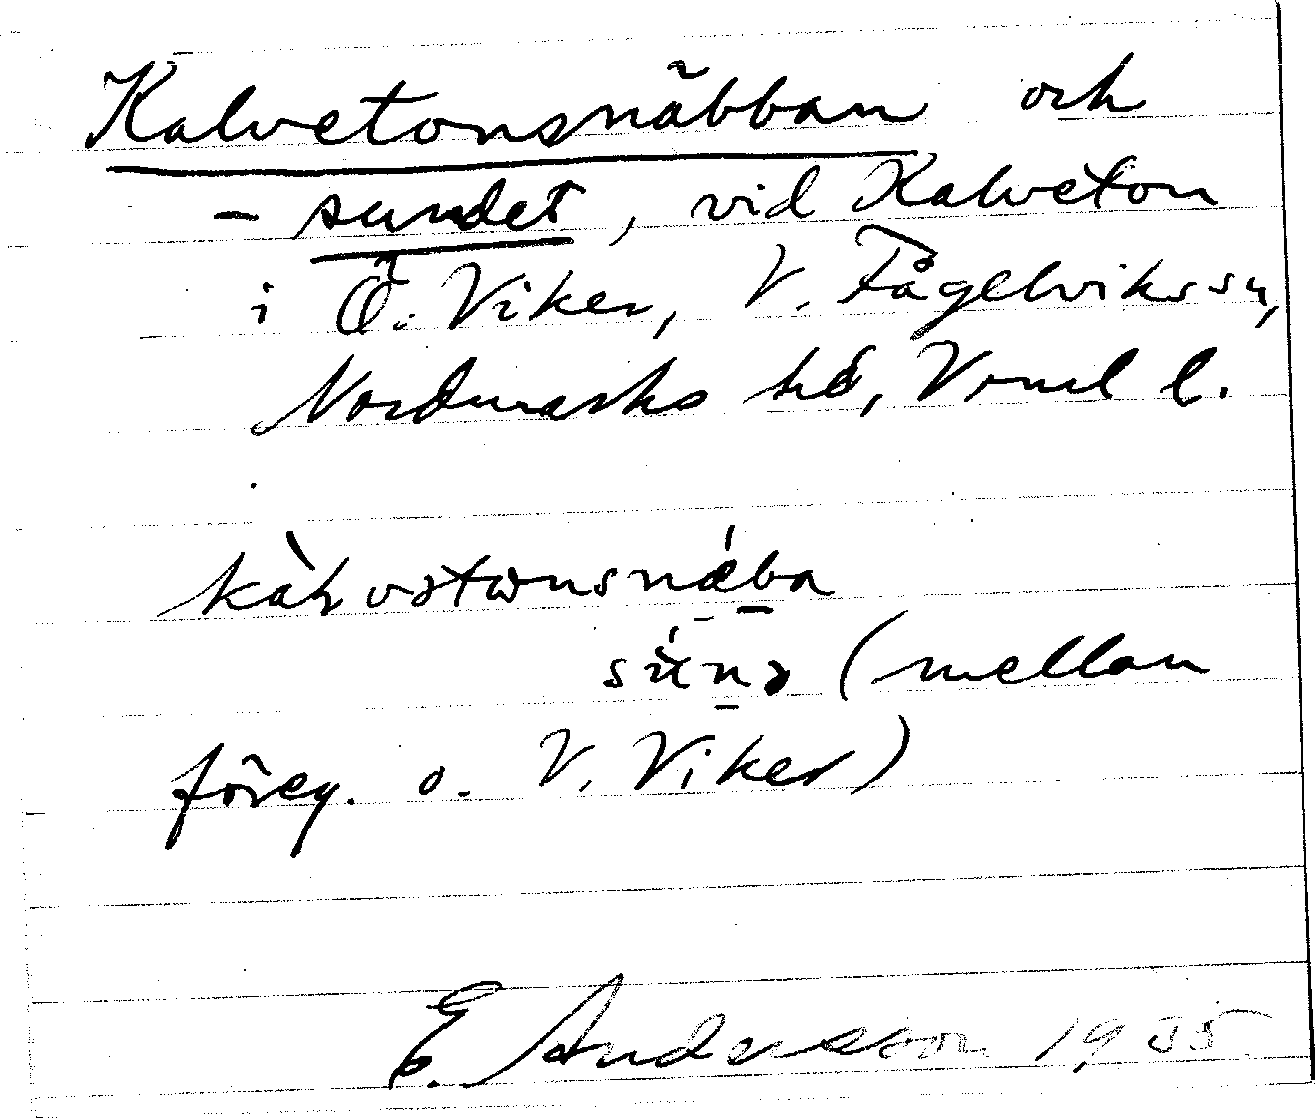 Kalvetonsnäbban och
- sundet, vid Kalveton
i Ö. Viker, V. Fågelvikssn,
Nordmarks hd, Vrml l.
kàlvətωnsnǽba
sú̈nə (mellan
föreg. o. V. Viker)
E. Andersson 1935